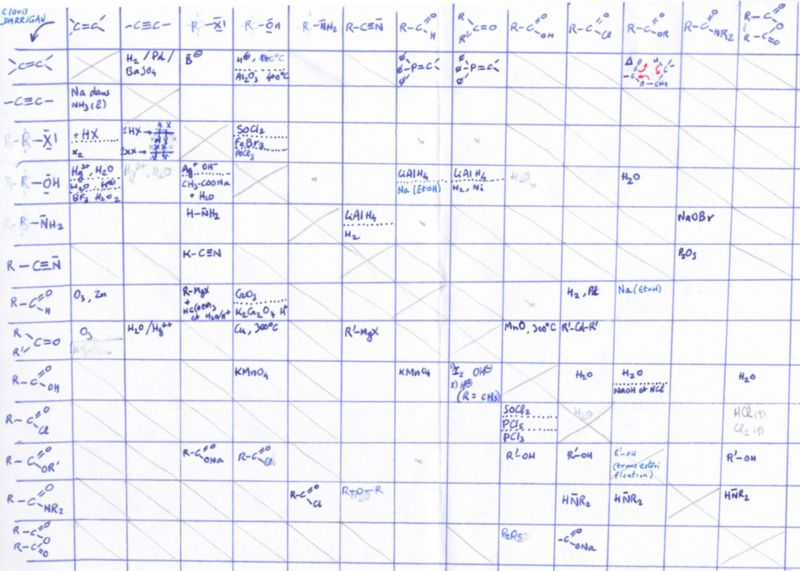 Clovis
DARRIGAN
C=C
-C≡C-
R-X̄|
R-ŌH
R-N̄H₂
R-C≡N̄
R-C(=O)H
R R' C=O
R-C(=O)OH
R-C(=O)Cl
R-C(=O)OR
R-C(=O)NR₂
R-C(=O)-O-C(=O)-R
C=C
H₂ / Pd / BaSO₄
B⊖
Al₂O₃ 400°C
ϕ ϕ ϕ P=C
ϕ ϕ ϕ P=C
Δ
-C≡C-
Na dans
NH₃(l)
R-X̄|
+ HX
X₂
2HX →
2XX →
SOCl₂
PCl₃
R-ŌH
Hg²⁺, H₂O
H₂O, H⊕
BF₃ H₂O₂
Hg²⁺, H₂O
Ag⁺ OH⁻
CH₃-COONa
+ H₂O
LiAlH₄
Na (EtOH)
LiAlH₄
H₂, Ni
H₂O
H₂O
R-N̄H₂
H-N̄H₂
LiAlH₄
H₂
NaOBr
R-C≡N̄
K-C≡N
P₂O₅
R-C(=O)H
O₃, Zn
R-MgX
+
HC(OEt)₃
et H₂O/H⁺
CrO₃
K₂Cr₂O₇ H⁺
H₂, Pd
Na (EtOH)
R R' C=O
O₃
H₂O/Hg⁺⁺
Cu, 300°C
R'-MgX
MnO, 300°C
R'-Cd-R'
R-C(=O)OH
KMnO₄
KMnO₄
1) I₂ OH⊖
2) H⊕
(R = CH₃)
H₂O
H₂O
NaOH et HCl
H₂O
R-C(=O)Cl
SOCl₂
PCl₅
PCl₃
H₂O
HCl (g)
Cl₂ (g)
R-C(=O)OR'
R-C(=O)ONa
R-C(=O)Cl
R'-OH
R'-OH
R'-OH
(transestéri
fication)
R'-OH
R-C(=O)NR₂
R-C(=O)Cl
HN̄R₂
HN̄R₂
HN̄R₂
R-C(=O)-O-C(=O)-R
P₂O₅
-C(=O)ONa